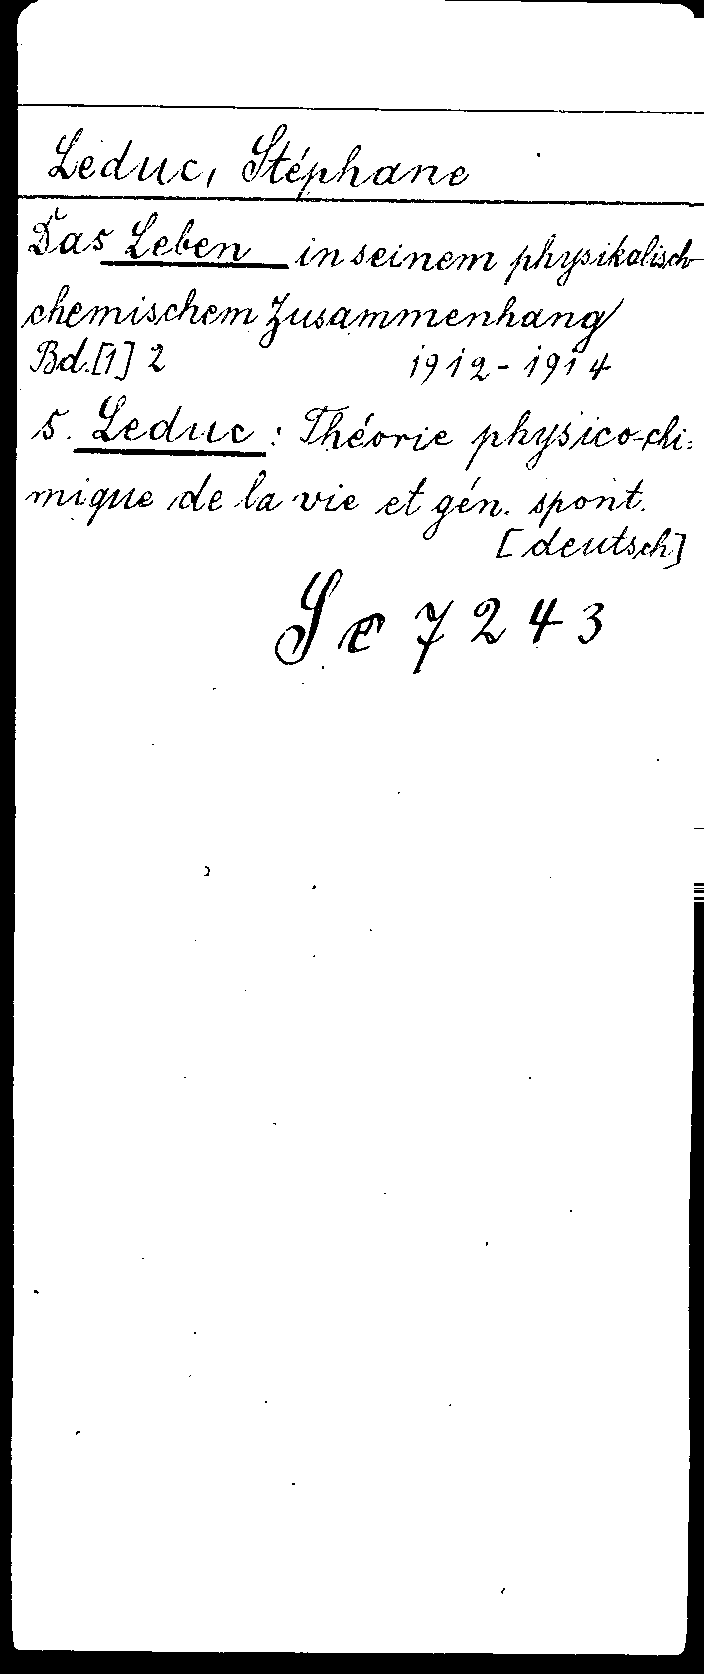 Leduc, Stéphane
Das Leben in seinem physikalisch-
chemischem Zusammenhang
Bd.[1] 2 1912-1914
s. Leduc: Théorie physico-chi-
mique de la vie et gén. spont.
[deutsch]
Se 7243